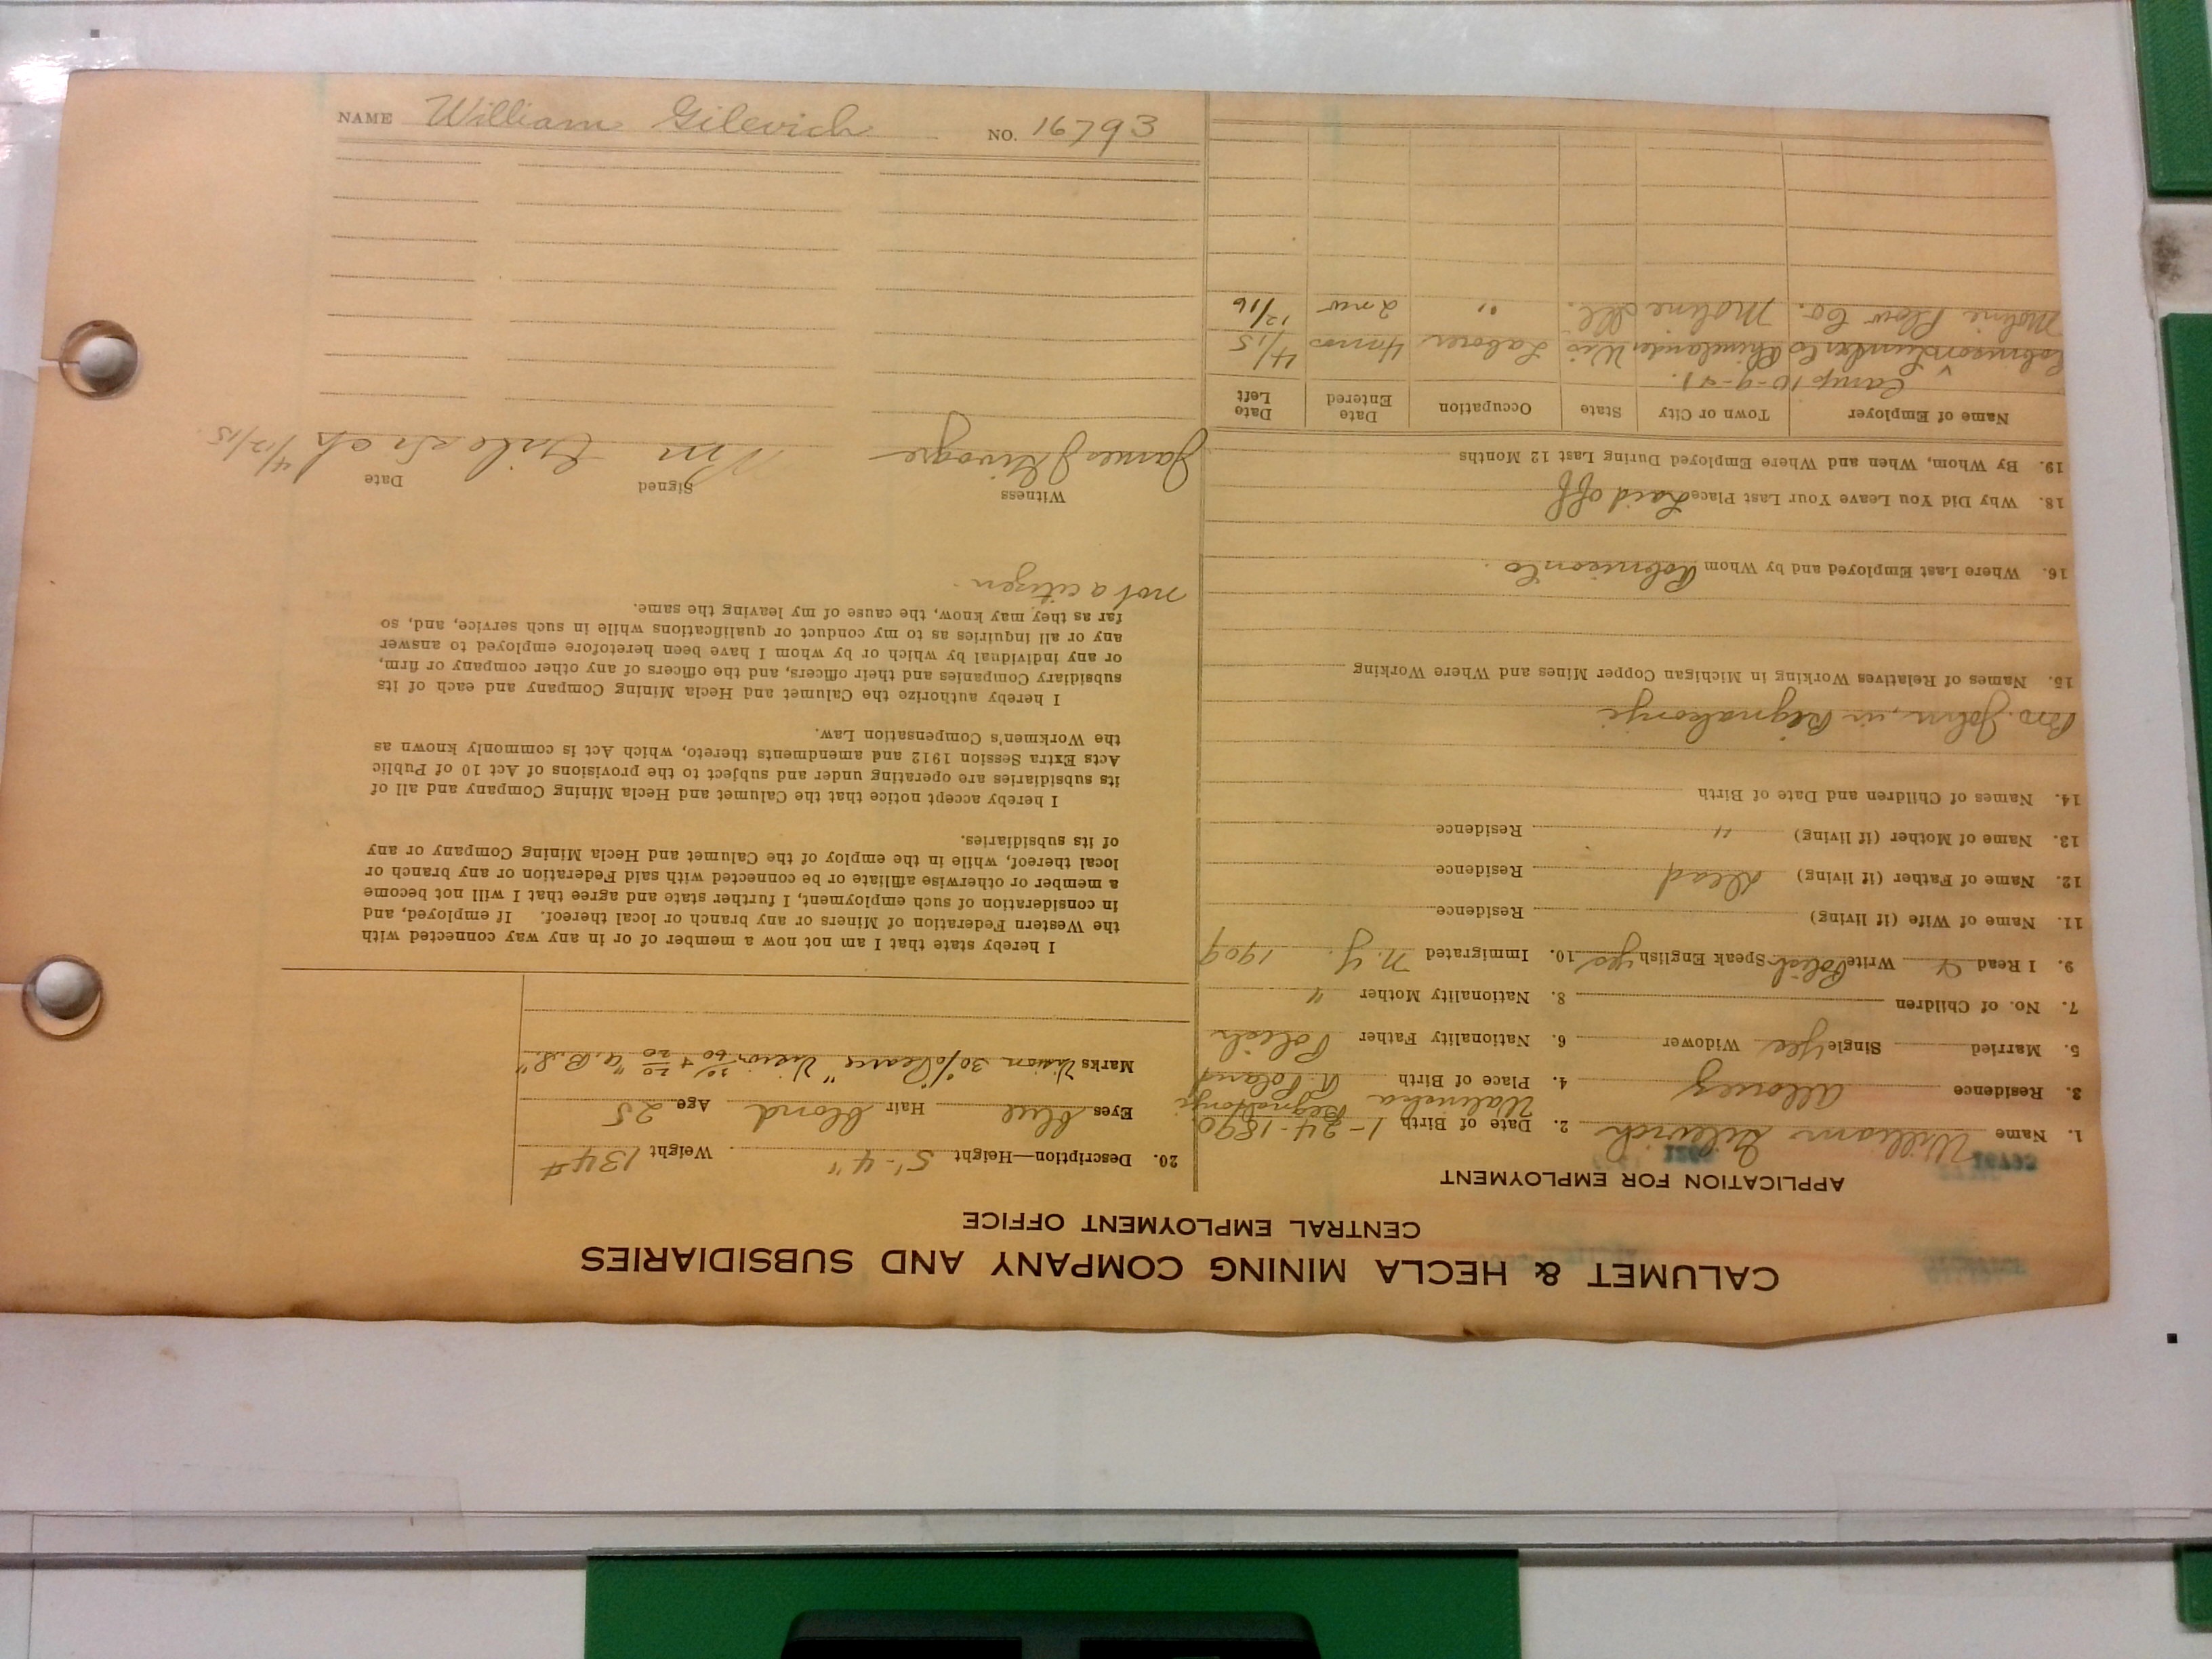 CALUMET & HECLA MINING COMPANY AND SUBSIDIARIES
CENTRAL EMPLOYMENT OFFICE
APPLICATION FOR EMPLOYMENT
16793
1. Name William Gilevich 2. Date of Birth 1-24-1890
3. Residence Allouez 4. Place of Birth R. Poland
5. Married Single Yes Widower 6. Nationality Father Polish
7. No. of Children 8. Nationality Mother "
9. I Read Write Polish Speak English yes 10. Immigrated N.Y. 1909
11. Name of Wife (if living) Residence
12. Name of Father (if living) Dead Residence
13. Name of Mother (if living) " Residence
14. Names of Children and Date of Birth
Bro. John, in
15. Names of Relatives Working in Michigan Copper Mines and Where Working
16. Where Last Employed and by Whom Robinson Co.
18. Why Did You Leave Your Last Place Laid off
19. By Whom, When and Where Employed During Last 12 Months
Name of Employer Town or City State Occupation Date Entered Date Left
Camp 10-9-
Robinson Lumber Co Rhinelander Wis Laborer 4 mos 4/15
Moline Plow Co. Moline Ill. " 12/16
20. Description—Height 5'-4" Weight 134#
Eyes blue Hair blond Age 25
Marks Vision
I hereby state that I am not now a member of or in any way connected with
the Western Federation of Miners or any branch or local thereof. If employed, and
in consideration of such employment, I further state and agree that I will not become
a member or otherwise affiliate or be connected with said Federation or any branch or
local thereof, while in the employ of the Calumet and Hecla Mining Company or any
of its subsidiaries.
I hereby accept notice that the Calumet and Hecla Mining Company and all of
its subsidiaries are operating under and subject to the provisions of Act 10 of Public
Acts Extra Session 1912 and amendments thereto, which Act is commonly known as
the Workmen's Compensation Law.
I hereby authorize the Calumet and Hecla Mining Company and each of its
subsidiary Companies and their officers, and the officers of any other company or firm,
or any individual by which or by whom I have been heretofore employed to answer
any or all inquiries as to my conduct or qualifications while in such service, and, so
far as they may know, the cause of my leaving the same.
not a citizen.
Witness Signed Date
James 4/12/15
NAME William Gilevich NO. 16793